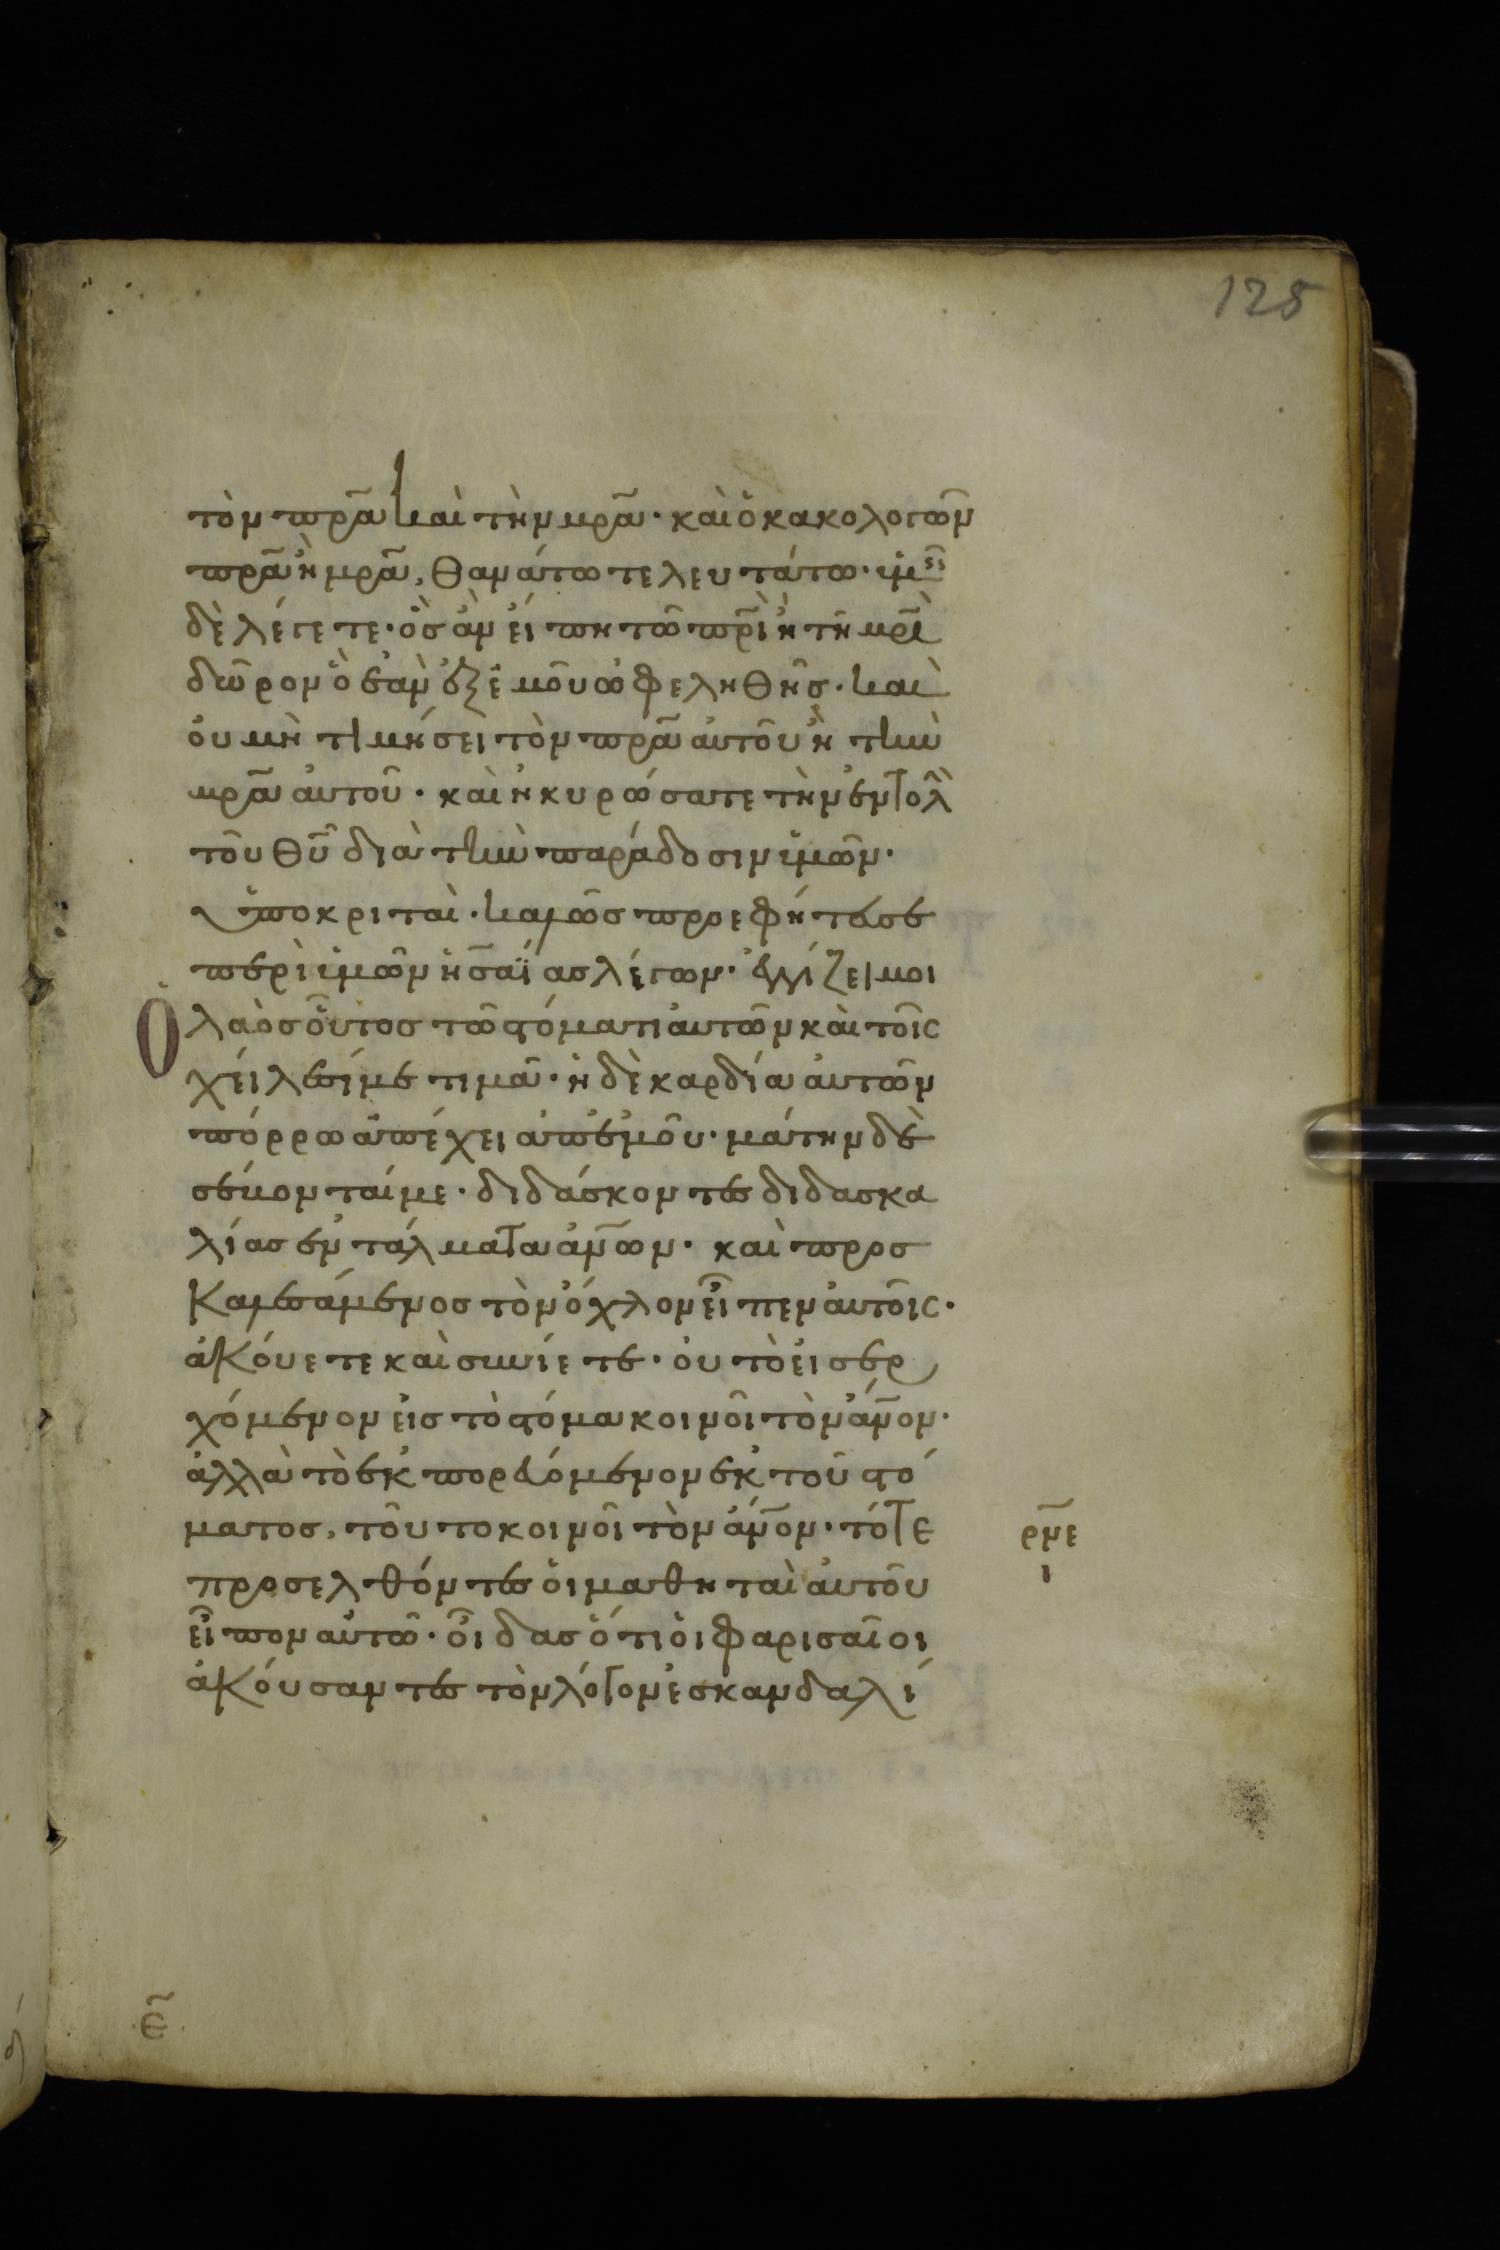 125
τὸν πρ̅α̅ καὶ τὴν μρ̅α̅· καὶ ὁ κακολογῶν
πρ̅α̅ ἢ μρ̅α̅, θανάτω τελευτάτω· ὑμεῖς
δὲ λέγετε· ὃς ἂν εἴπη τῶ πρ̅ι̅ ἢ τῆ μρ̅ι̅
δῶρον ὃ ἐὰν ἐξ ἐμοῦ ὠφεληθῆς· καὶ
οὐ μὴ τιμήσει τὸν πρ̅α̅ αὐτοῦ ἢ τὴν
μρ̅α̅ αὐτοῦ· καὶ ἠκυρώσατε τὴν ἐντολὴ
τοῦ θ̅υ̅ διὰ τὴν παράδοσιν ὑμῶν·
ὑποκριταὶ· καλῶς προεφήτευσε
περὶ ὑμῶν ἡσαΐας λέγων· ἐγγίζει μοι
Ὁ λαὸς οὗτος τῶ στόματι αὐτῶν καὶ τοῖς
χείλεσί με τιμᾶ· ἡ δὲ καρδία αὐτῶν
πόρρω ἀπέχει ἀπ' ἐμοῦ· μάτην δὲ
σέβονταί με· διδάσκοντες διδασκα
λίας ἐντάλματα ἀν̅ων· καὶ προσ
καλεσάμενος τὸν ὄχλον εἶπεν αὐτοῖς·
ἀκούετε καὶ συνίετε· οὐ τὸ εἰσερ
χόμενον εἰς τὸ στόμα κοινοῖ τὸν ἄν̅ον·
ἀλλὰ τὸ ἐκπορευόμενον ἐκ τοῦ στό
ματος, τοῦτο κοινοῖ τὸν ἄν̅ον· τότε
ρν̅ε
ι
προσελθόντες οἱ μαθηταὶ αὐτοῦ
εἶπον αὐτῶ· οἶδας ὅτι οἱ φαρισαῖοι
ἀκούσαντες τὸν λόγον ἐσκανδαλί
ε̅